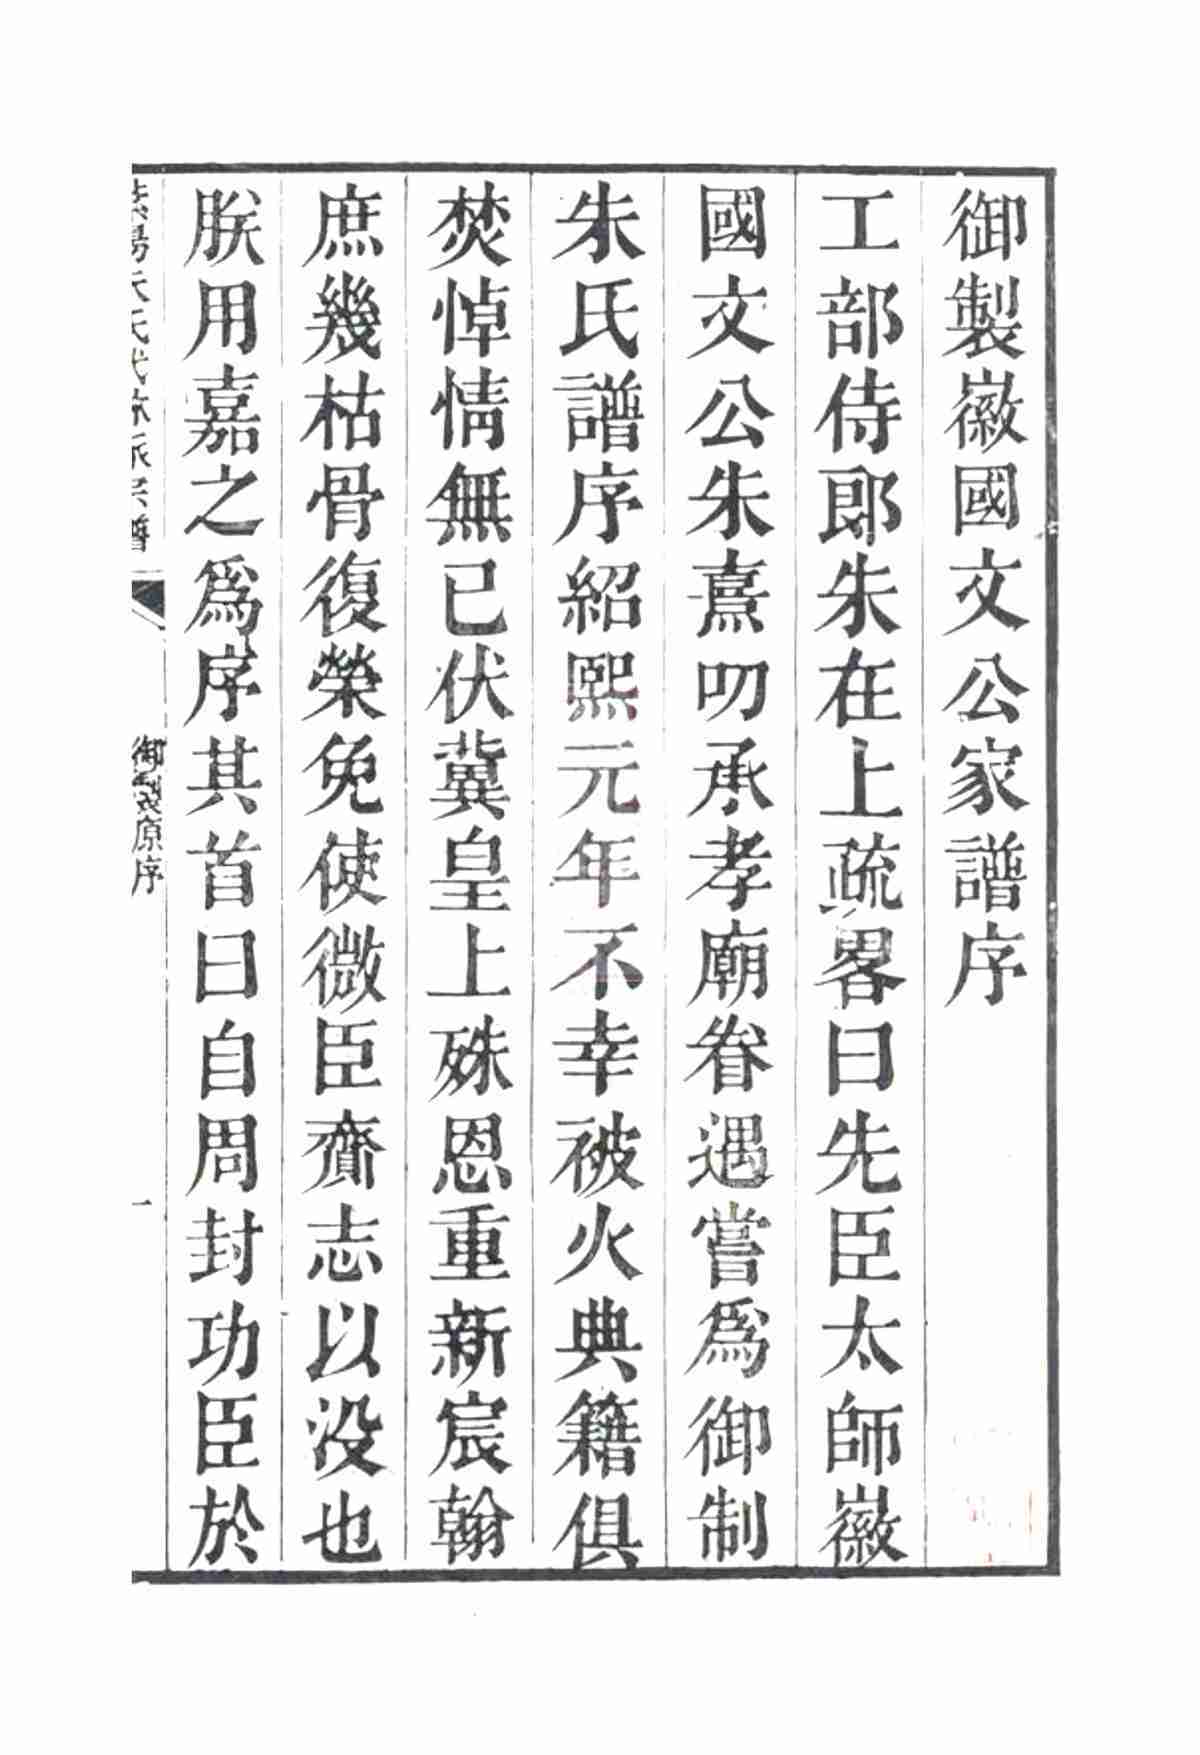 御製徽國文公家譜序
工部侍郎朱在上疏畧曰先臣太師徽
國文公朱熹叨承孝廟眷遇嘗爲御制
朱氏譜序紹熙元年不幸被火典籍俱
焚悼情無已伏冀皇上殊恩重新宸翰
庶幾枯骨復榮免使微臣齎志以没也
朕用嘉之爲序其首曰自周封功臣於
御製原序
一